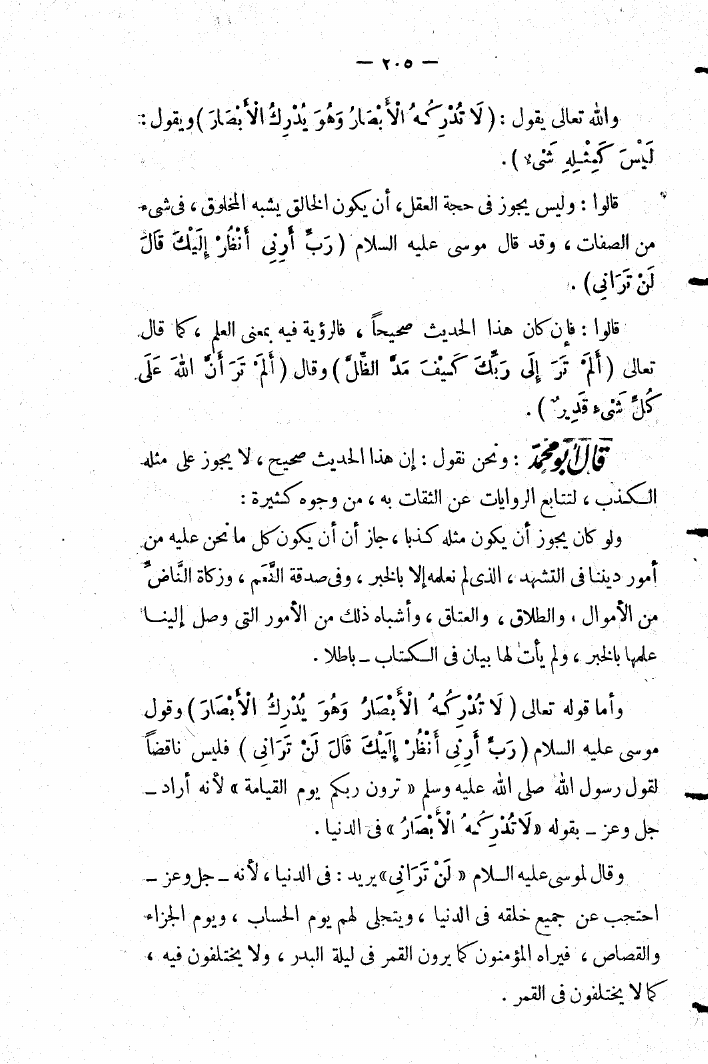 — ٢٠٥ —
والله تعالى يقول : ( لَا تُدْرِكُهُ الْأَبْصَارُ وَهُوَ يُدْرِكُ الْأَبْصَارَ ) ويقول :
لَيْسَ كَمِثْلِهِ شَىْءٌ ) .
قالوا : وليس يجوز فى حجة العقل، أن يكون الخالق يشبه المخلوق ، فى شىء
من الصفات ، وقد قال موسى عليه السلام ( رَبِّ أَرِنِى أَنْظُرْ إِلَيْكَ قَالَ
لَنْ تَرَانِى ) .
قالوا : فإن كان هذا الحديث صحيحاً ، فالرؤية فيه بمعنى العلم ، كما قال
تعالى ( أَلَمْ تَرَ إِلَى رَبِّكَ كَيْفَ مَدَّ الظِّلَّ ) وقال ( أَلَمْ تَرَ أَنَّ اللهَ عَلَى
كُلِّ شَىْءٍ قَدِيرٌ ) .
قال أبو محمد : ونحن نقول : إن هذا الحديث صحيح ، لا يجوز على مثله
الكذب ، لتتابع الروايات عن الثقات به ، من وجوه كثيرة :
ولو كان يجوز أن يكون مثله كذبا ، جاز أن أن يكون كل ما نحن عليه من
أمور ديننا فى التشهد ، الذى لم نعلمه إلا بالخبر ، وفى صدقة النَّعَم ، وزكاة النَّاضِّ
من الأموال ، والطلاق ، والعتاق ، وأشباه ذلك من الأمور التى وصل إلينا
علمها بالخبر ، ولم يأت لها بيان فى الكتاب ــ باطلا .
وأما قوله تعالى ( لَا تُدْرِكُهُ الْأَبْصَارُ وَهُوَ يُدْرِكُ الْأَبْصَارَ ) وقول
موسى عليه السلام ( رَبِّ أَرِنِى أَنْظُرْ إِلَيْكَ قَالَ لَنْ تَرَانِى ) فليس ناقضاً
لقول رسول الله صلى الله عليه وسلم « ترون ربكم يوم القيامة » لأنه أراد ــ
جل وعز ــ بقوله « لَا تُدْرِكُهُ الْأَبْصَارُ » فى الدنيا .
وقال لموسى عليه السلام « لَنْ تَرَانِى » يريد : فى الدنيا ، لأنه ــ جل وعز ــ
احتجب عن جميع خلقه فى الدنيا ، ويتجلى لهم يوم الحساب ، ويوم الجزاء
والقصاص ، فيراه المؤمنون كما يرون القمر فى ليلة البدر ، ولا يختلفون فيه ،
كما لا يختلفون فى القمر .